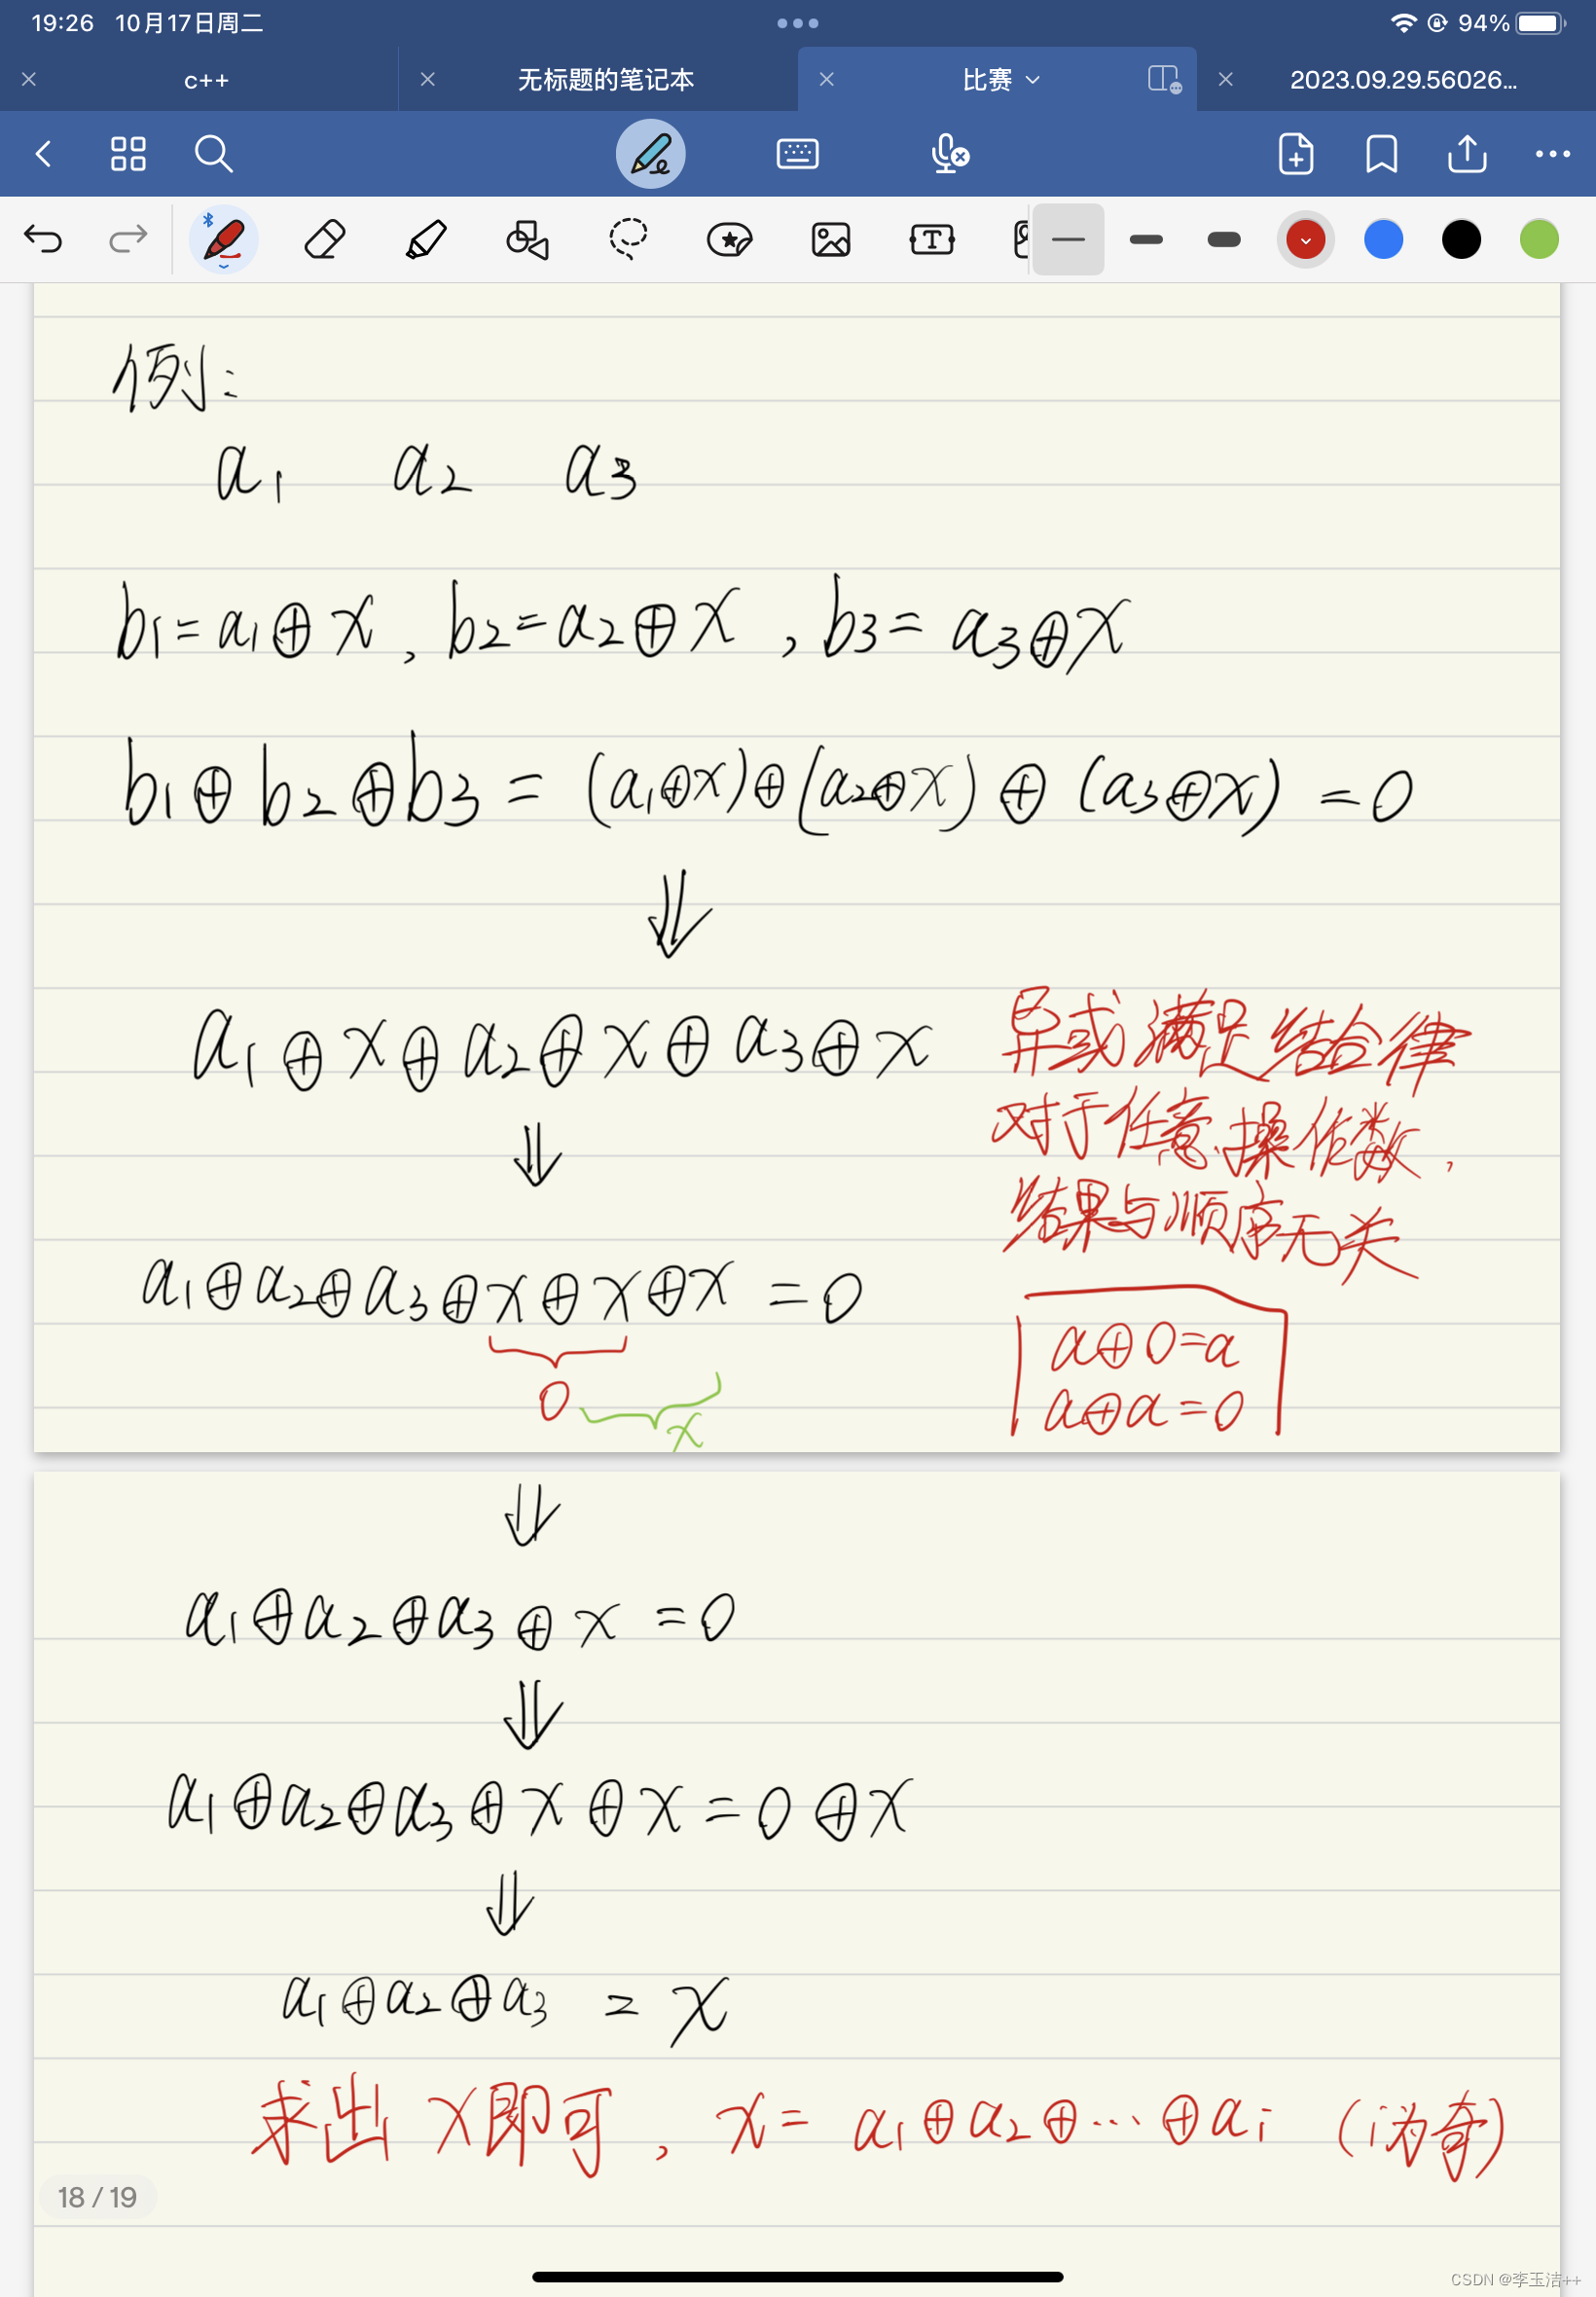 19:26 10月17日周二
94%
c++
无标题的笔记本
比赛
2023.09.29.56026...
例:
a₁ a₂ a₃
b₁=a₁⊕x, b₂=a₂⊕x, b₃=a₃⊕x
b₁⊕b₂⊕b₃=(a₁⊕x)⊕(a₂⊕x)⊕(a₃⊕x)=0
⇓
a₁⊕x⊕a₂⊕x⊕a₃⊕x
异或满足结合律
对于任意操作数,
结果与顺序无关
⇓
a₁⊕a₂⊕a₃⊕x⊕x⊕x=0
0
x
a⊕0=a
a⊕a=0
⇓
a₁⊕a₂⊕a₃⊕x=0
⇓
a₁⊕a₂⊕a₃⊕x⊕x=0⊕x
⇓
a₁⊕a₂⊕a₃=x
求出x即可, x=a₁⊕a₂⊕…⊕aᵢ (i为奇)
18 / 19
CSDN @李玉洁++